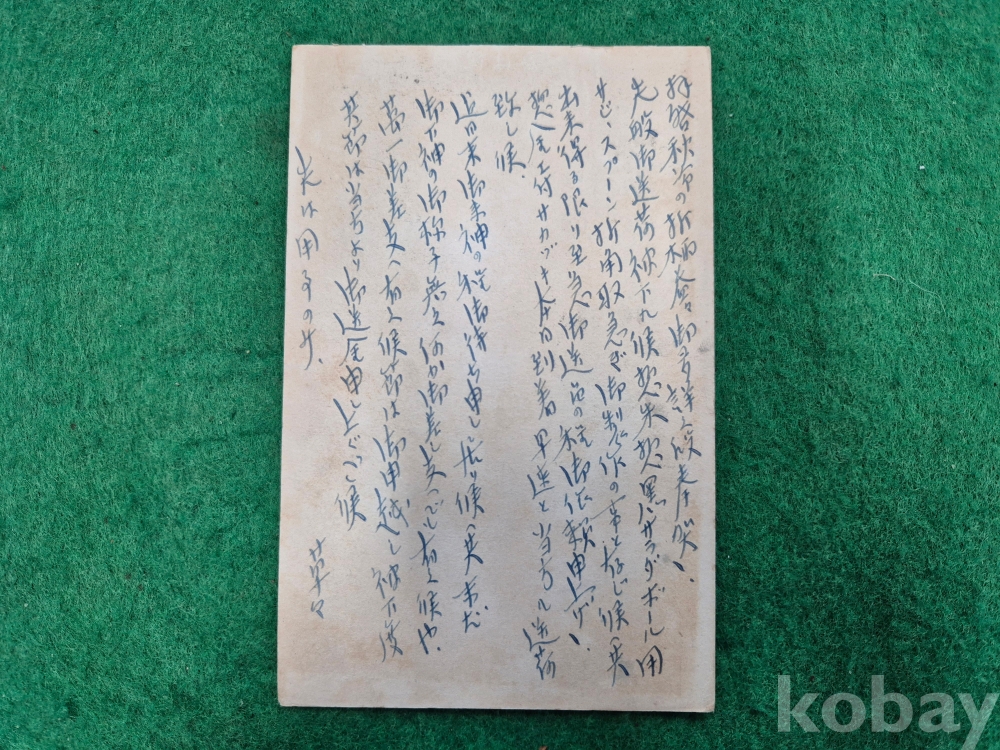 拝啓秋冷の折柄益々御多祥之段奉賀、
先般御送荷被下れ候惣朱惣黒ガサラダボール用
サビースプーン折角取急ぎ御製作の事と存じ候へ共
出来得る限り至急御送品の程御依頼申上げ、
惣金付サカヅキ今日到着早速と当方へ送荷
致し候、
近日来御来神の程御待ち申し居り候へ共未だ
御下神の御様子無之何か御差し支へでも有之候や、
萬一御差支へ有之候節は御申越し被下度
其節は当方より御送金申し上ぐべく候
先は用事のみ、
草々
kobay